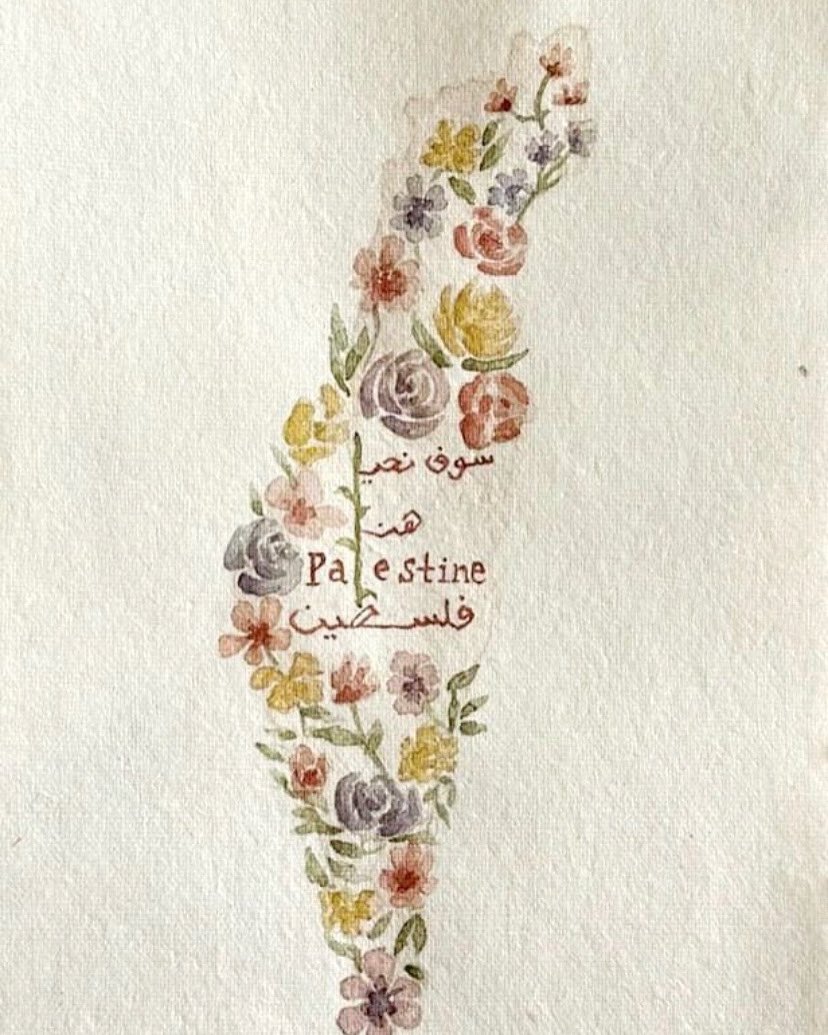 سوف نحيا
هنا
Palestine
فلسطين